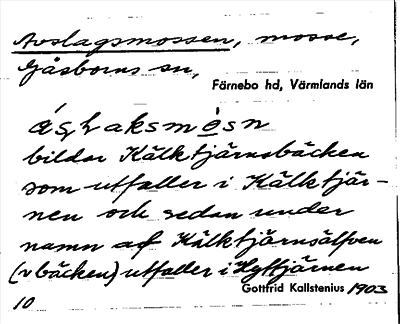 Avslagsmossen, mosse,
Gåsborns sn,
Färnebo hd, Värmlands län
bildar Kälktjärnsbäcken
som utfaller i Kälktjär-
nen och sedan under
namn af Kälktjärnsälfven
(v bäcken) utfaller i Hyttjärnen
Gottfrid Kallstenius 1903
10